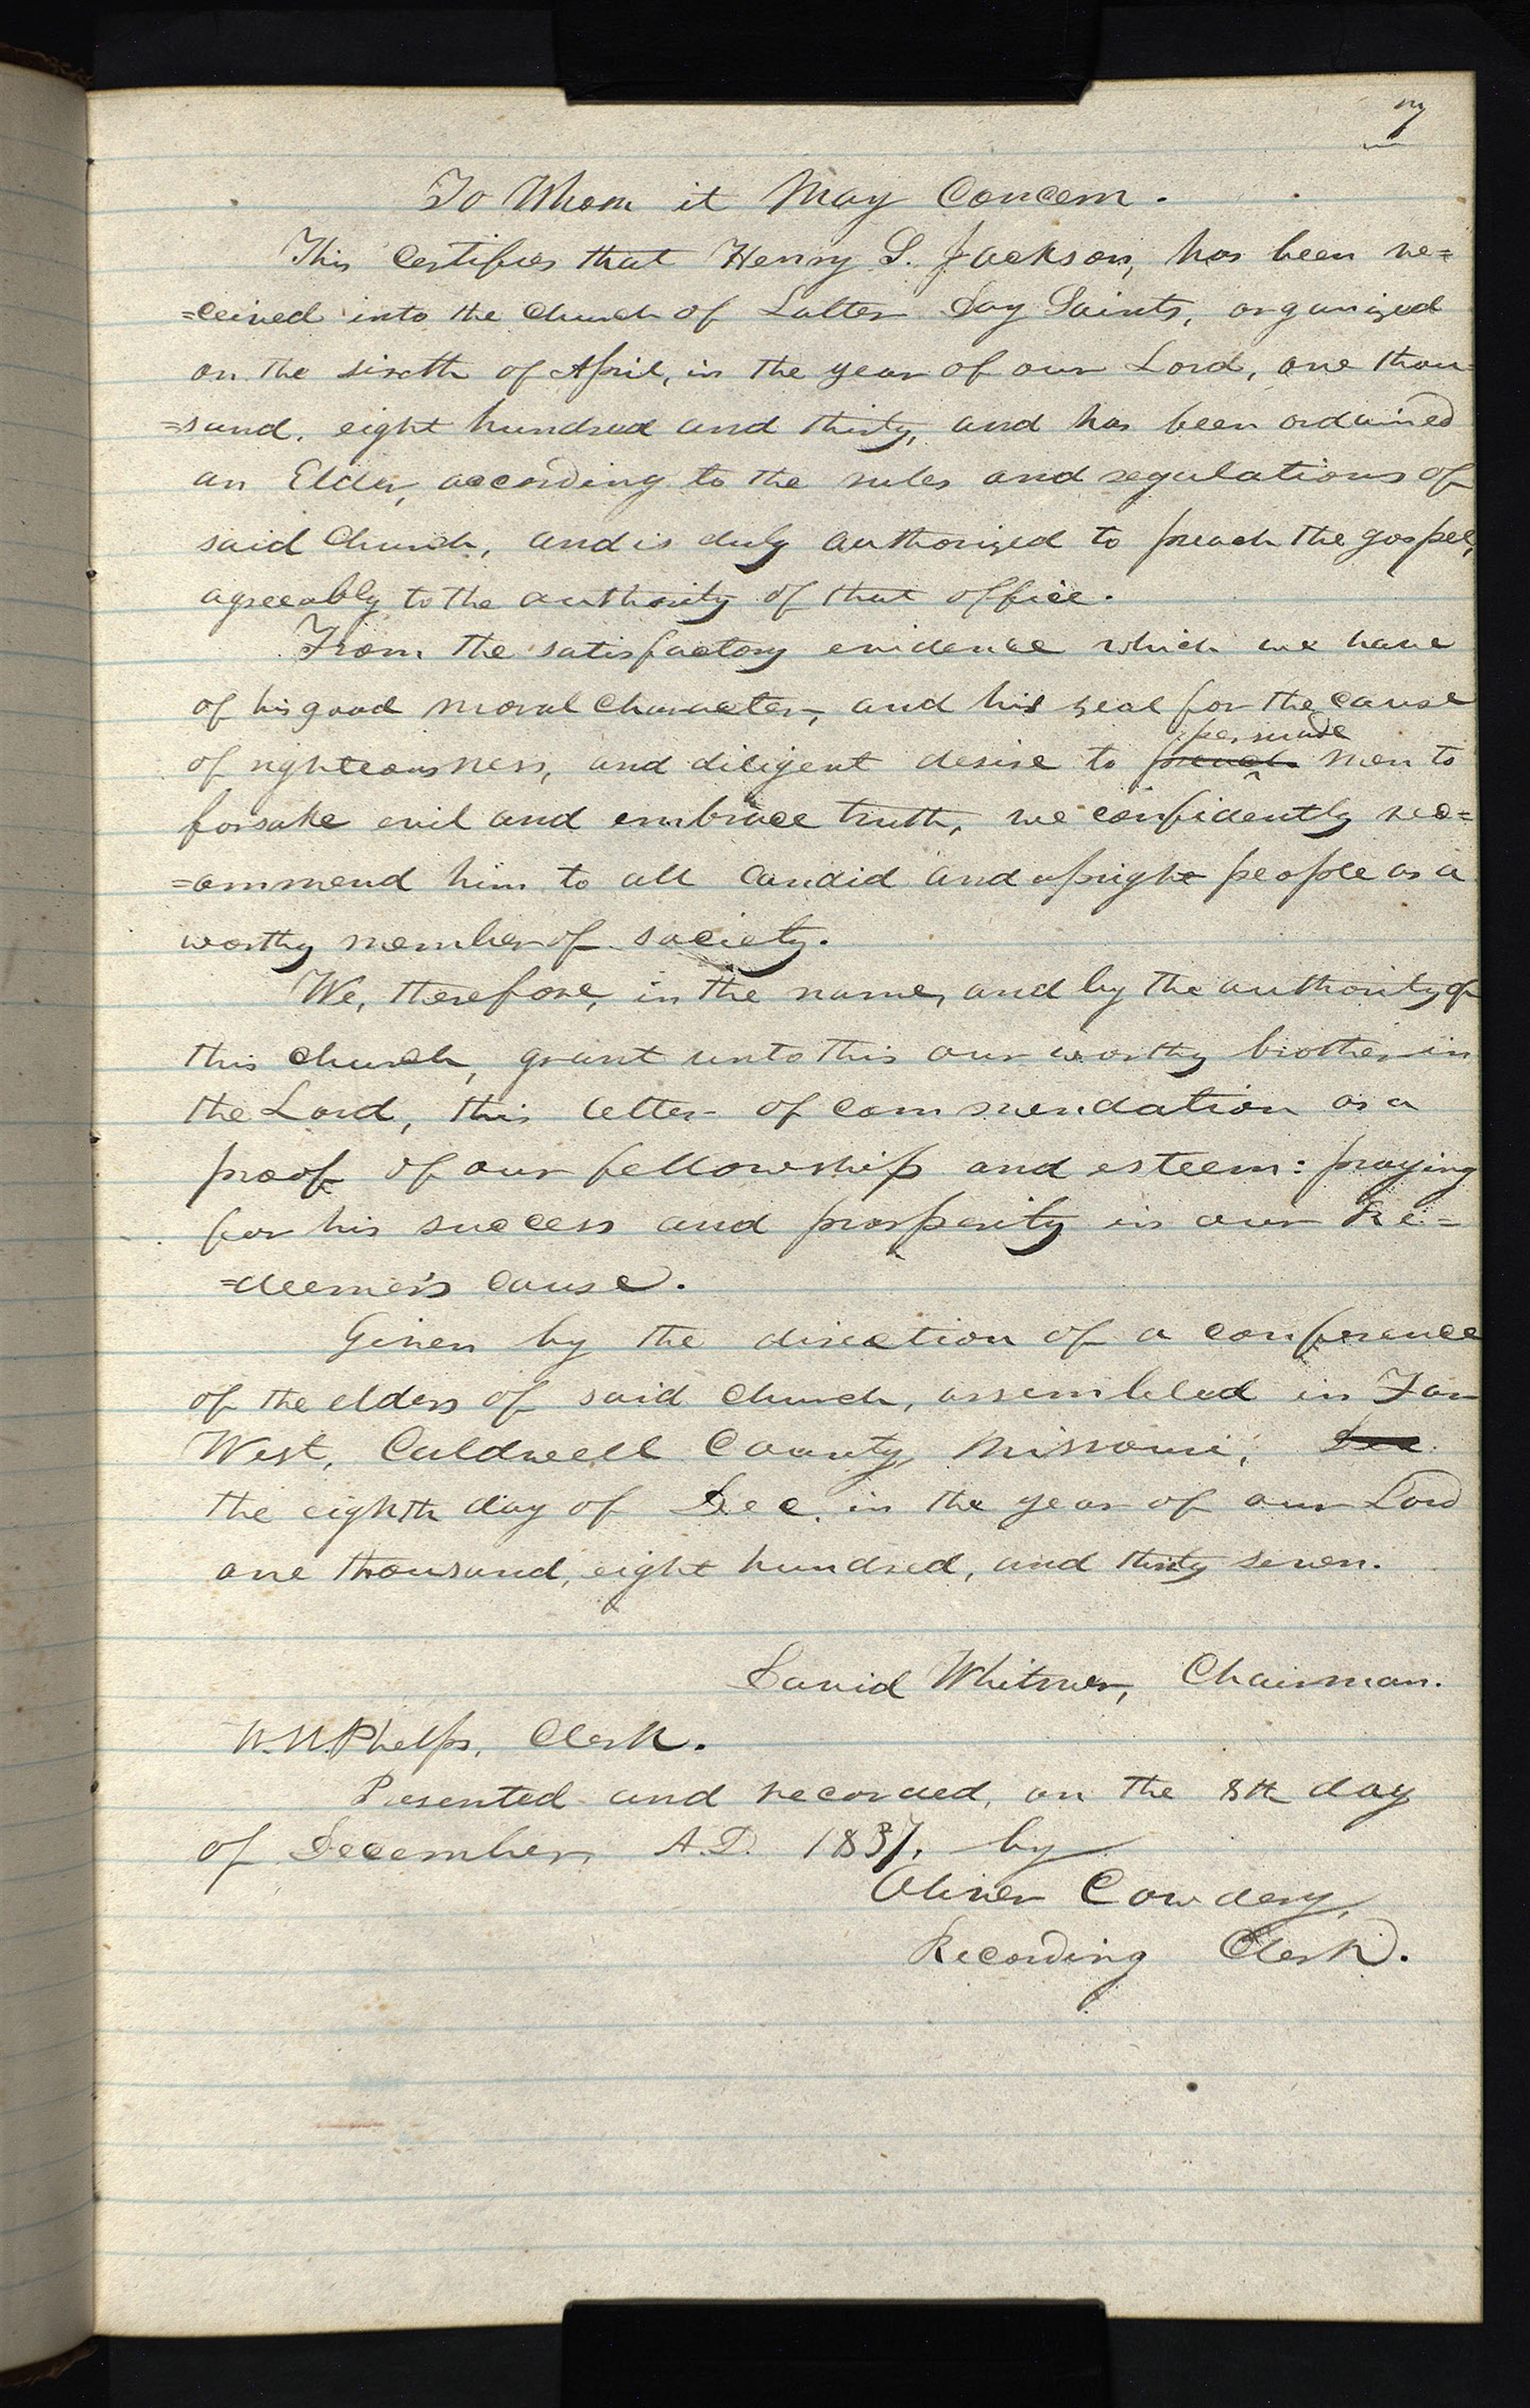 7
To Whom it May Concern.
This Certifies that Henry S. Jackson, has been re=
=ceived into the Church of Latter Day Saints, organized
on the sixth of April, in the year of our Lord, one thou=
=sand, eight hundred and thirty, and has been ordained
an Elder, according to the rules and regulations of
said Church, and is duly authorized to preach the gospel,
agreeably to the authority of that office.
From the satisfactory evidence which we have
of his good moral character, and his zeal for the cause
persuade
of righteousness, and diligent desire to preach men to
forsake evil and embrace truth, we confidently rec=
=ommend him to all candid and upright people as a
worthy member of society.
We, therefore, in the name, and by the authority of
this church, grant unto this our worthy brother in
the Lord, this letter of commendation as a
proof of our fellowship and esteem: praying
for his success and prosperity in our Re=
=deemer's cause.
Given by the direction of a conference
of the elders of said church, assembled in Far
West, Caldwell County, Missouri, Dec
the eighth day of Dec. in the year of our Lord
one thousand, eight hundred, and thirty seven.
David Whitmer, Chairman.
W. W. Phelps, Clerk.
Presented and recorded, on the 8th day
of December, A.D. 1837, by
Oliver Cowdery,
Recording Clerk.